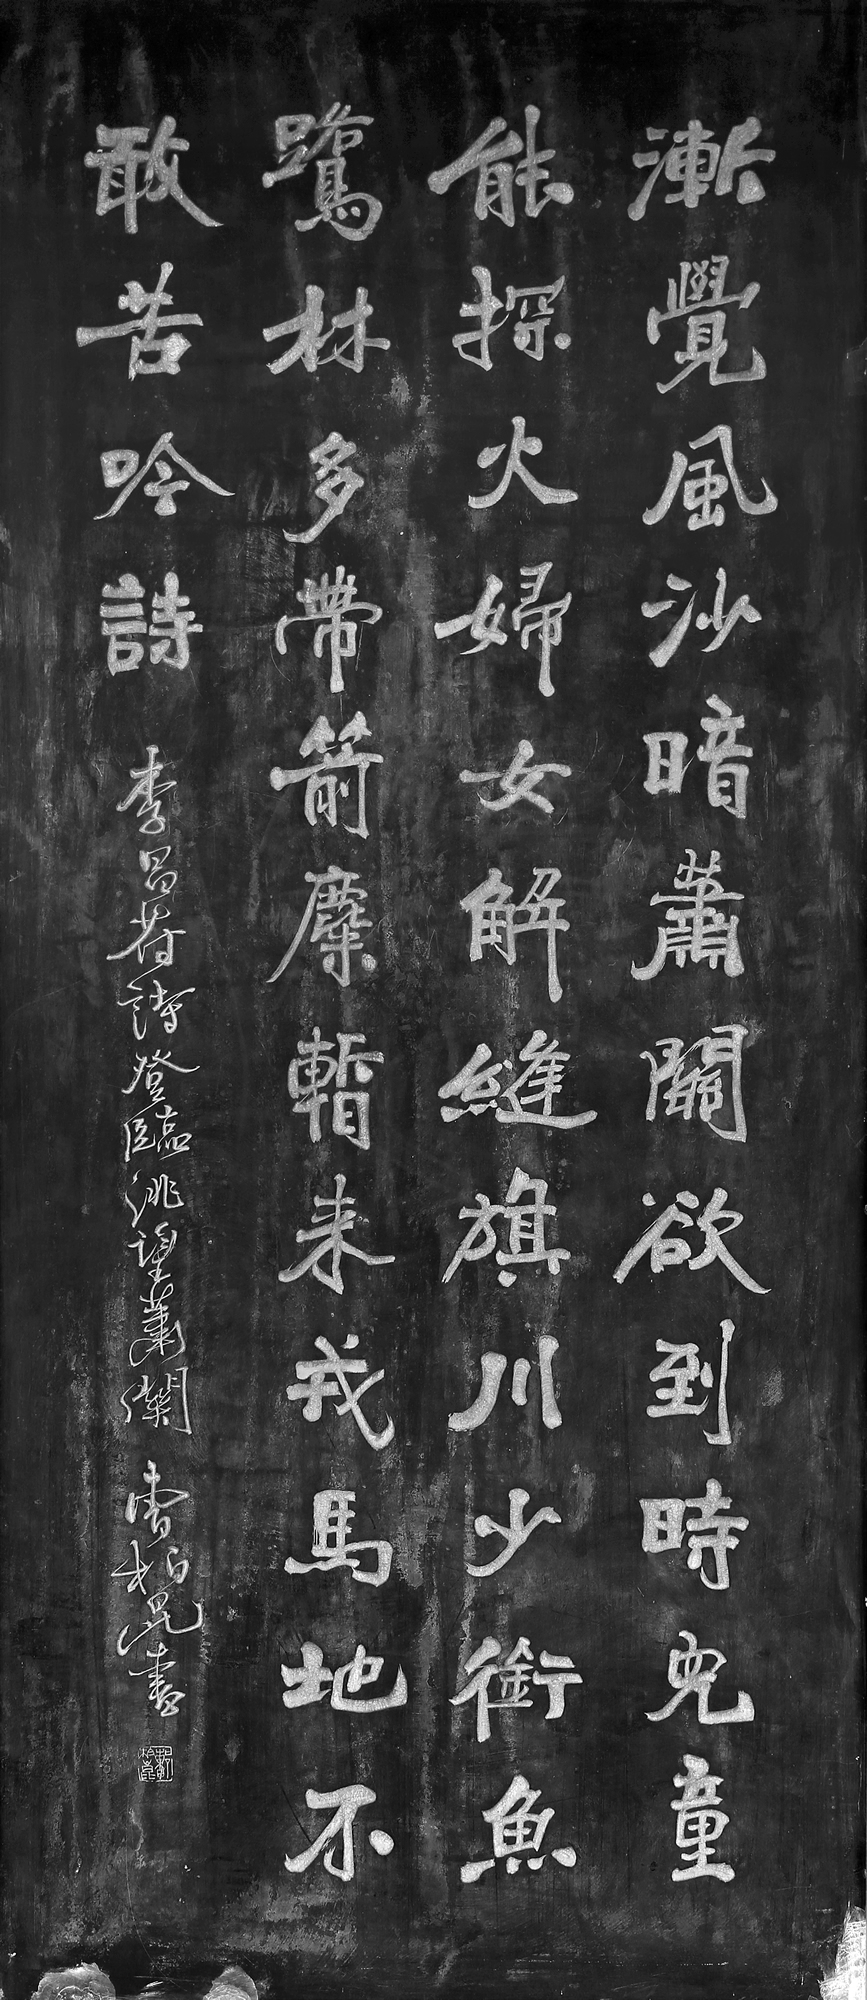 漸覺風沙暗蕭關欲到時兒童
能探火婦女解縫旗川少銜魚
鷺林多帶箭麋暫来戎馬地不
敢苦吟詩
李昌符詩登臨洮望蕭關 曹柏崑書